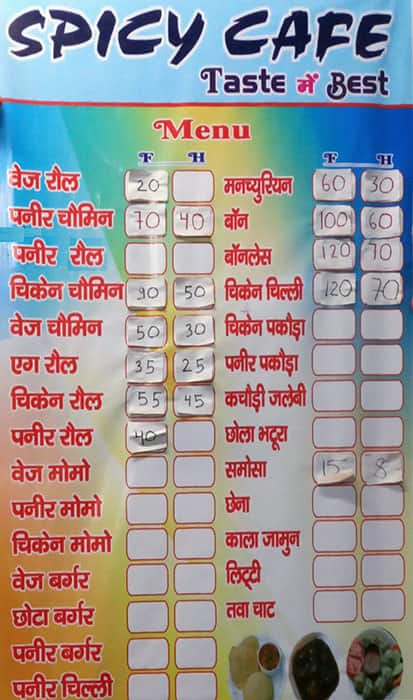 SPICY CAFE
Taste में Best
Menu
F H
वेज रौल 20
पनीर चौमिन 70 40
पनीर रौल
चिकेन चौमिन 90 50
वेज चौमिन 50 30
एग रौल 35 25
चिकेन रौल 55 45
पनीर रौल 40
वेज मोमो
पनीर मोमो
चिकेन मोमो
वेज बर्गर
छोटा बर्गर
पनीर बर्गर
पनीर चिल्ली
F H
मनच्युरियन 60 30
बॉन 100 60
बॉनलेस 120 70
चिकेन चिल्ली 120 70
चिकन पकौड़ा
पनीर पकौड़ा
कचौड़ी जलेबी
छोला भटूरा
समोसा 15 8
छेना
काला जामुन
लिट्टी
तवा चाट